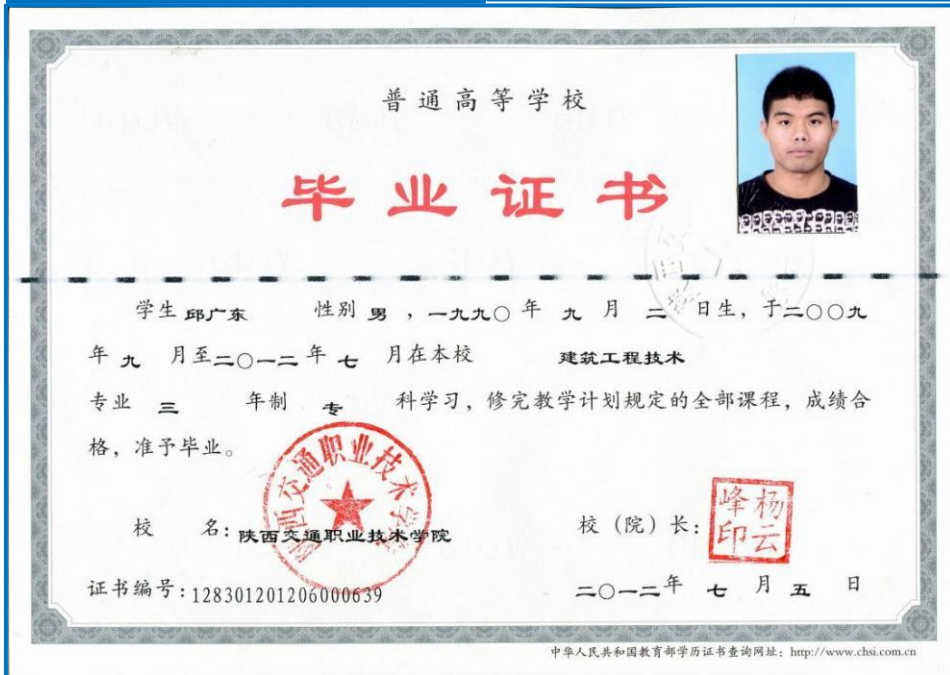 普通高等学校
毕业证书
学生 邱广东 性别 男 ，一九九〇 年 九 月 二 日生，于二〇〇九
年 九 月至二〇一二 年 七 月在本校 建筑工程技术
专业 三 年制 专 科学习，修完教学计划规定的全部课程，成绩合
格，准予毕业。
陕西交通职业技术学院
校 名：陕西交通职业技术学院
校（院）长：
杨云峰印
证书编号：128301201206000639
二〇一二年 七 月 五 日
中华人民共和国教育部学历证书查询网址：http://www.chsi.com.cn